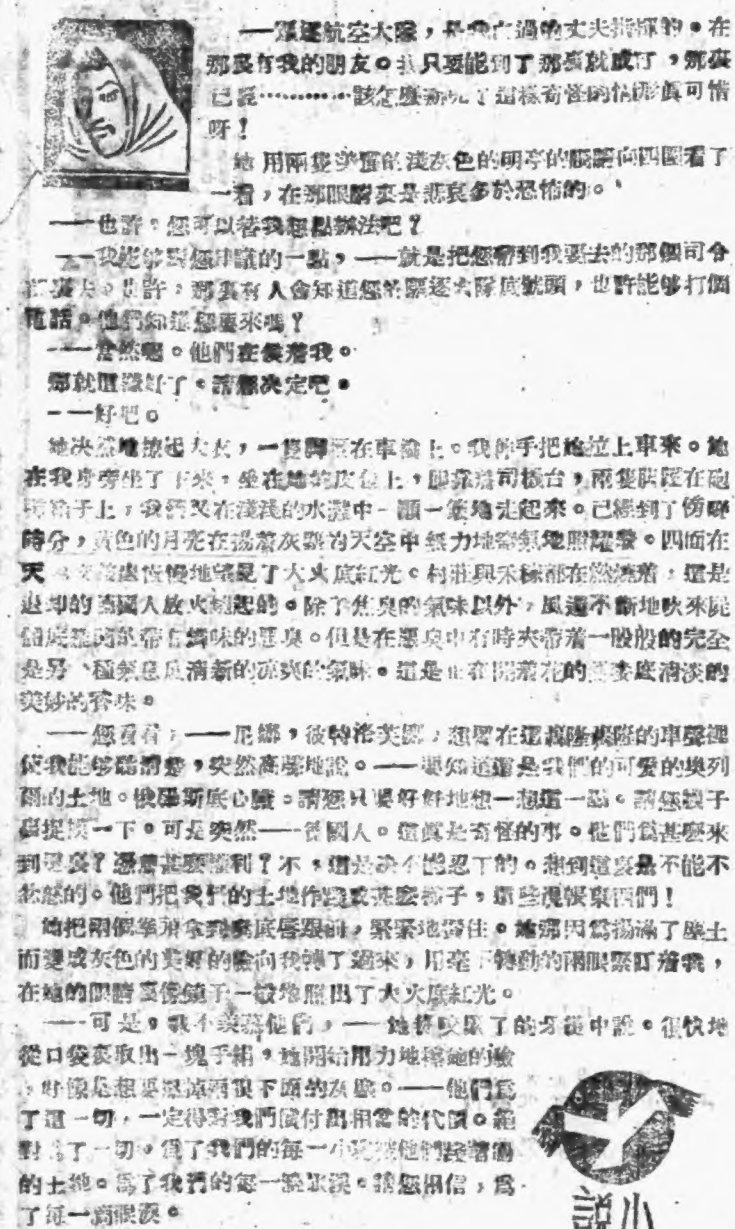 ——驅逐航空大隊，是我亡過的丈夫指揮的。在
那裏有我的朋友。我只要能到了那裏就成了，那裏
已經…………該怎麽辦呢了這樣奇怪的情形真可惜
呀！
她用兩隻美麗的淺灰色的明亮的眼睛向四圍看了
一看，在那眼睛裏是悲哀多於恐怖的。
——也許，您可以替我想點辦法吧？
——我能够對您建議的一點，——就是把您帶到我要去的那個司令
裏去。也許，那裏有人會知道您的驅逐大隊底號頭，也許能够打個
電話。他們知道您要來嗎？
——當然囉。他們在候着我。
那就這樣好了。請您決定吧。
——好吧。
她決然地撩起大衣，一隻脚在車輪上。我伸手把她拉上車來。她
在我身旁坐了下來，坐在她的皮包上，脚靠着司機台，兩隻脚踩在砲
彈箱子上，我們又在淺淺的水灘中一顛一簸地走起來。已經到了傍晚
時分，黃色的月亮在揚着灰塵的天空中無力地照耀着。四面在
天 處恍惚地望見了大火底紅光。村莊與禾稼都在燃燒着，這是
退却的德國人放火燒起的。除了焦臭的氣味以外，風還不斷地吹來屍
體底 帶有 味的惡臭。但是在惡臭中有時夾帶着一股股的完全
是另一種氣息底清新的涼爽的氣味。這是正在開着花的 麥底清淡的
美妙的香味。
——您看看，——尼娜，彼特洛芙娜，想要在這轟隆轟隆的車聲裡
使我能够聽清楚，突然高聲地說。——要知道這是我們的可愛的奧列
爾的土地。俄羅斯底心臟。請您只要好好地想一想這一點。請您設
一下。可是突然——德國人。這真是奇怪的事。他們爲甚麽來
到這裏？憑着甚麽權利？不，這是決不能忍下的。想到這裏是不能不
忿怒的。他們把我們的土地作踐成甚麽樣子，這些混帳東西們！
她把兩個拳頭拿到嘴底唇跟前，緊緊地 住。她那因爲揚滿了塵土
而變成灰色的美好的臉向我轉了過來，用毫不轉動的兩眼緊盯着我，
在她的眼睛裏像鏡子一般地照出了大火底紅光。
——可是，我不羨慕他們，——她從咬緊了的牙縫中說。很快地
從口袋裏取出一塊手絹，她開始用力地擦她的臉
，好像是想要擦掉兩眼下頭的灰塵。——他們爲
了這一切，一定得對我們償付出相當的代價。絕
對爲了一切。爲了我們的每一小塊被他們踐踏過
的土地。爲了我們的每一滴眼淚。請您相信，爲
了每一滴眼淚。
小說